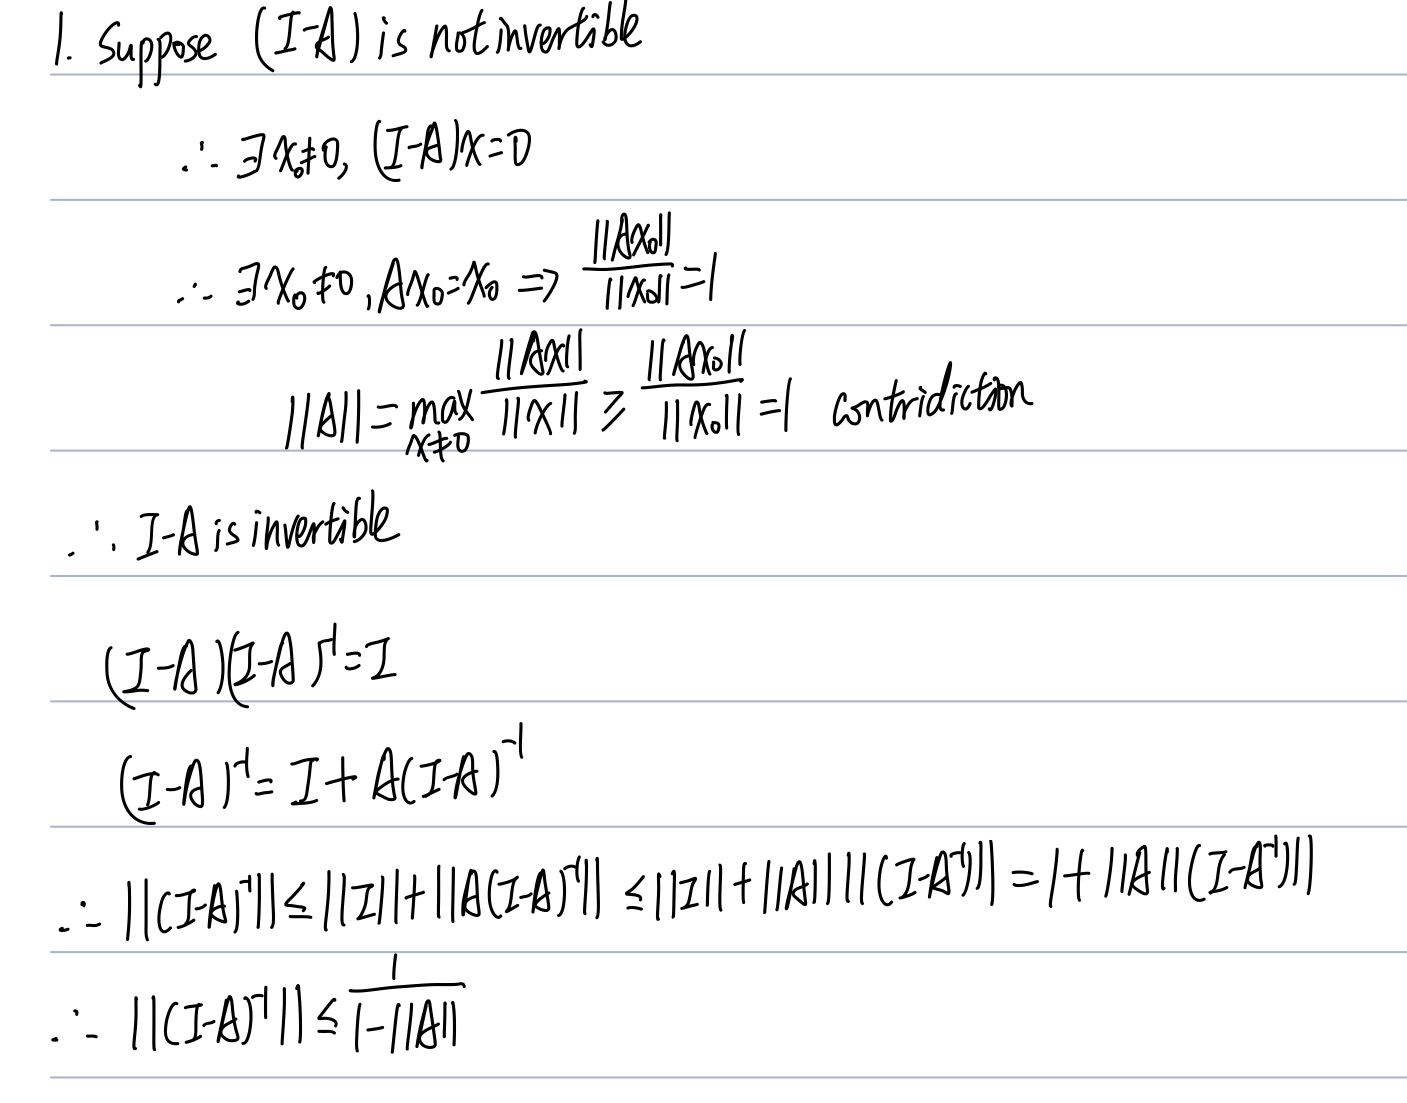 1. Suppose (I-A) is not invertible
∴ ∃x₀≠0, (I-A)x=0
∴ ∃x₀≠0, Ax₀=x₀ ⇒ ||Ax₀||/||x₀|| =1
||A|| = max_{x≠0} ||Ax||/||x|| ≥ ||Ax₀||/||x₀|| =1 contridiction
∴ I-A is invertible
(I-A)(I-A)⁻¹=I
(I-A)⁻¹= I+ A(I-A)⁻¹
∴ ||(I-A)⁻¹|| ≤ ||I||+||A(I-A)⁻¹|| ≤ ||I||+||A|| ||(I-A⁻¹)|| = 1+ ||A||(I-A⁻¹)||
∴ ||(I-A)⁻¹|| ≤ 1/(1-||A||)